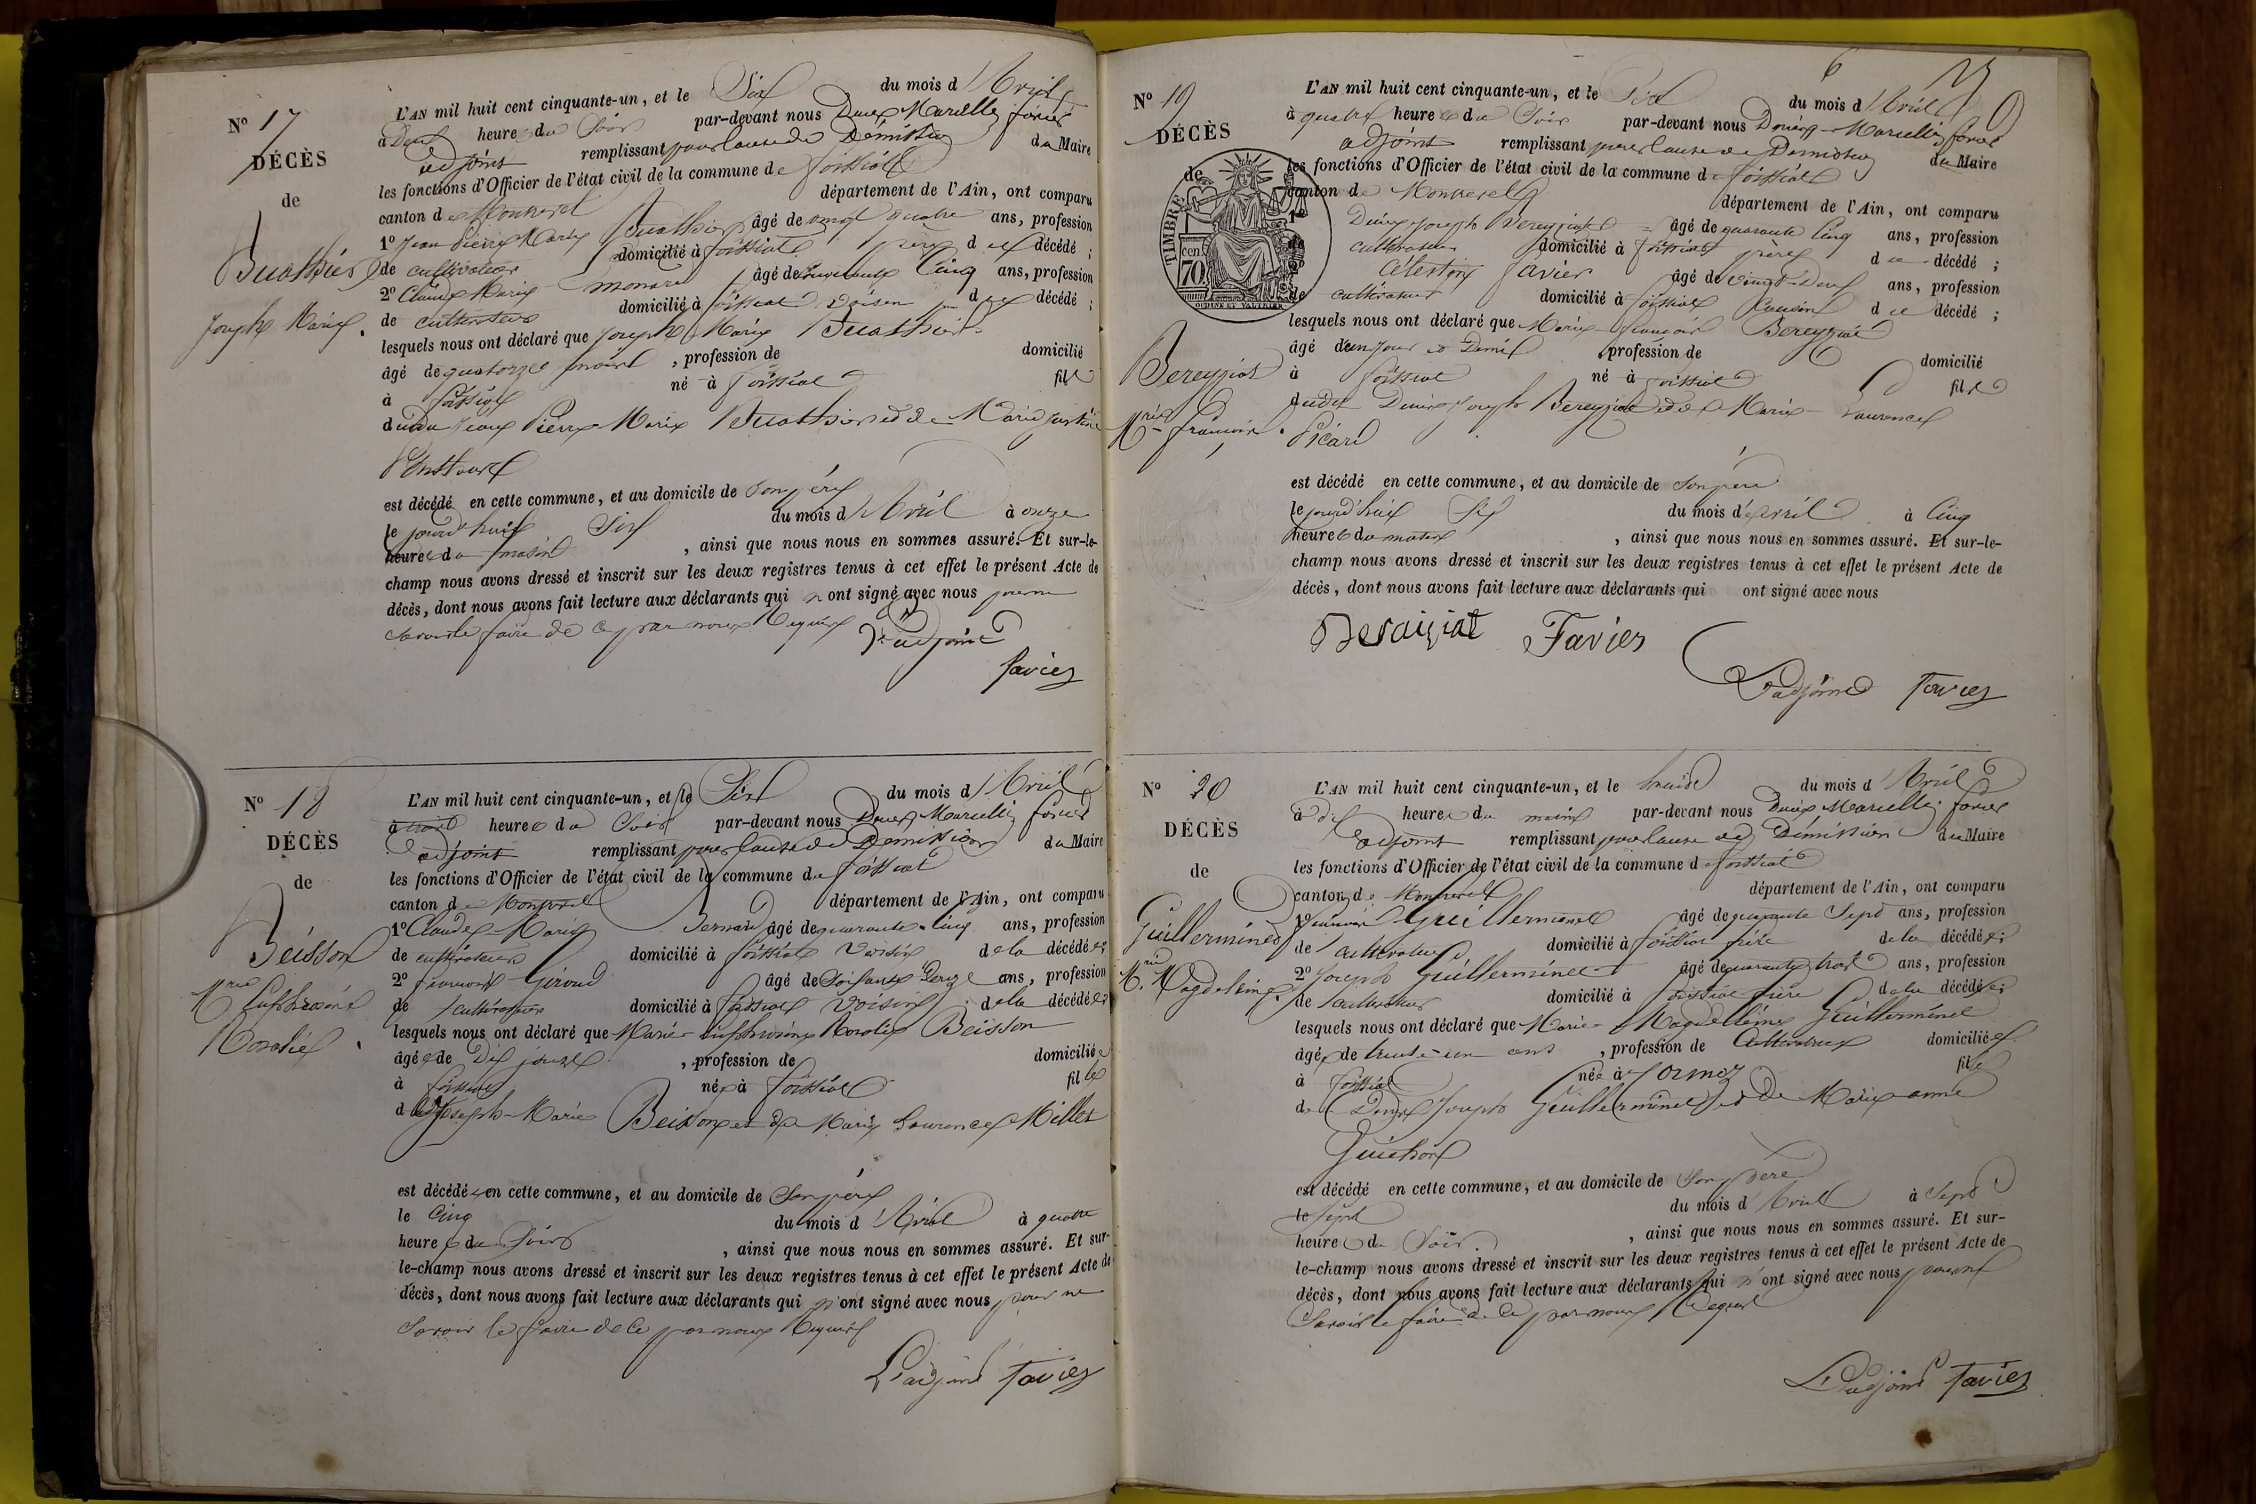 N° 17
DÉCÈS
de
Buathier
Joseph Marie.
L'AN mil huit cent cinquante-un, et le Six du mois d'Avril
à Deux heures du Soir par-devant nous Denis Marcellin favier
adjoint remplissant pour cause de Démission du Maire
les fonctions d'Officier de l'état civil de la commune de foissiat
canton de Montrevel département de l'Ain, ont comparu
1° Jean Pierre Marie Buathier âgé de vingt quatre ans, profession
de cultivateur domicilié à foissiat père du décédé ;
2° Claude Marie âgé de cinquante Cinq ans, profession
de cultivateur domicilié à foissiat voisin du décédé ;
lesquels nous ont déclaré que Joseph Marie Buathier
âgé de quatorze mois , profession de domicilié
à foissiat né à foissiat fils
dudit Jean Pierre Marie Buathier et de Marie
est décédé en cette commune, et au domicile de Son père
le jourd'huit Six du mois d'Avril à onze
heures du matin , ainsi que nous nous en sommes assuré. Et sur-le-
champ nous avons dressé et inscrit sur les deux registres tenus à cet effet le présent Acte de
décès, dont nous avons fait lecture aux déclarants qui n'ont signé avec nous pour ne
Savoir le faire de ce par nous Requis
L'adjoint
favier
N° 18
DÉCÈS
de
Beisson
Mrie Euphrosine
Rosalie
L'AN mil huit cent cinquante-un, et le Six du mois d'Avril
à trois heures du Soir par-devant nous Denis Marcellin favier
adjoint remplissant pour cause de Démission du Maire
les fonctions d'Officier de l'état civil de la commune de foissiat
canton de Montrevel département de l'Ain, ont comparu
1° Claude Marie Bernard âgé de quarante Cinq ans, profession
de cultivateur domicilié à foissiat Voisin de la décédée ;
2° francois Giroud âgé de Soixante Douze ans, profession
de cultivateur domicilié à foissiat Voisin de la décédée ;
lesquels nous ont déclaré que Marie Euphrosine Rosalie Beisson
âgée de Dix jours , profession de domiciliée
à foissiat née à foissiat fille
de Joseph-Marie Beisson et de Marie Laurence Millet
est décédée en cette commune, et au domicile de Son père
le Cinq du mois d'Avril à quatre
heures du Soir , ainsi que nous nous en sommes assuré. Et sur-
le-champ nous avons dressé et inscrit sur les deux registres tenus à cet effet le présent Acte de
décès, dont nous avons fait lecture aux déclarants qui n'ont signé avec nous pour ne
Savoir le faire de ce par nous Requis
L'adjoint favier
6
N° 19
DÉCÈS
de
TIMBRE
cen. 70
Bereyziat
Mrie francois.
L'AN mil huit cent cinquante-un, et le Six du mois d'Avril
à quatre heures du Soir par-devant nous Denis Marcellin favier
adjoint remplissant pour cause de Démission du Maire
les fonctions d'Officier de l'état civil de la commune de foissiat
canton de Montrevel département de l'Ain, ont comparu
1° Denis Joseph Bereyziat âgé de quarante Cinq ans, profession
de cultivateur domicilié à foissiat père du décédé ;
2° Célestin favier âgé de Vingt-Deux ans, profession
de cultivateur domicilié à foissiat Cousin du décédé ;
lesquels nous ont déclaré que Marie francois Bereyziat
âgé d'un jour et Demi profession de domicilié
à foissiat né à foissiat fils
dudit Denis Joseph Bereyziat et de Marie Laurence
Picard
est décédé en cette commune, et au domicile de Son père
le jourd'huit Six du mois d'avril à Cinq
heures du matin , ainsi que nous nous en sommes assuré. Et sur-le-
champ nous avons dressé et inscrit sur les deux registres tenus à cet effet le présent Acte de
décès, dont nous avons fait lecture aux déclarants qui ont signé avec nous
Beraiziat Favier
L'adjoint favier
N° 20
DÉCÈS
de
Guillerminet
Mrie Magdeleine
L'AN mil huit cent cinquante-un, et le huit du mois d'Avril
à dix heures du matin par-devant nous Denis Marcellin favier
adjoint remplissant pour cause de Démission du Maire
les fonctions d'Officier de l'état civil de la commune de foissiat
canton de Montrevel département de l'Ain, ont comparu
1° francois Guillerminet âgé de quarante Sept ans, profession
de cultivateur domicilié à foissiat frère de la décédée ;
2° Joseph Guillerminet âgé de quarante trois ans, profession
de cultivateur domicilié à foissiat frère de la décédée ;
lesquels nous ont déclaré que Marie Magdeleine Guillerminet
âgée de trente-un ans , profession de Cultivatrice domiciliée
à foissiat née à Jormoz fille
de Denis Joseph Guillerminet et de Marie anne
Guichon
est décédé en cette commune, et au domicile de Son père
le Sept du mois d'Avril à Sept
heures du Soir , ainsi que nous nous en sommes assuré. Et sur-
le-champ nous avons dressé et inscrit sur les deux registres tenus à cet effet le présent Acte de
décès, dont nous avons fait lecture aux déclarants qui n'ont signé avec nous pour ne
Savoir le faire de ce par nous Requis
L'adjoint favier